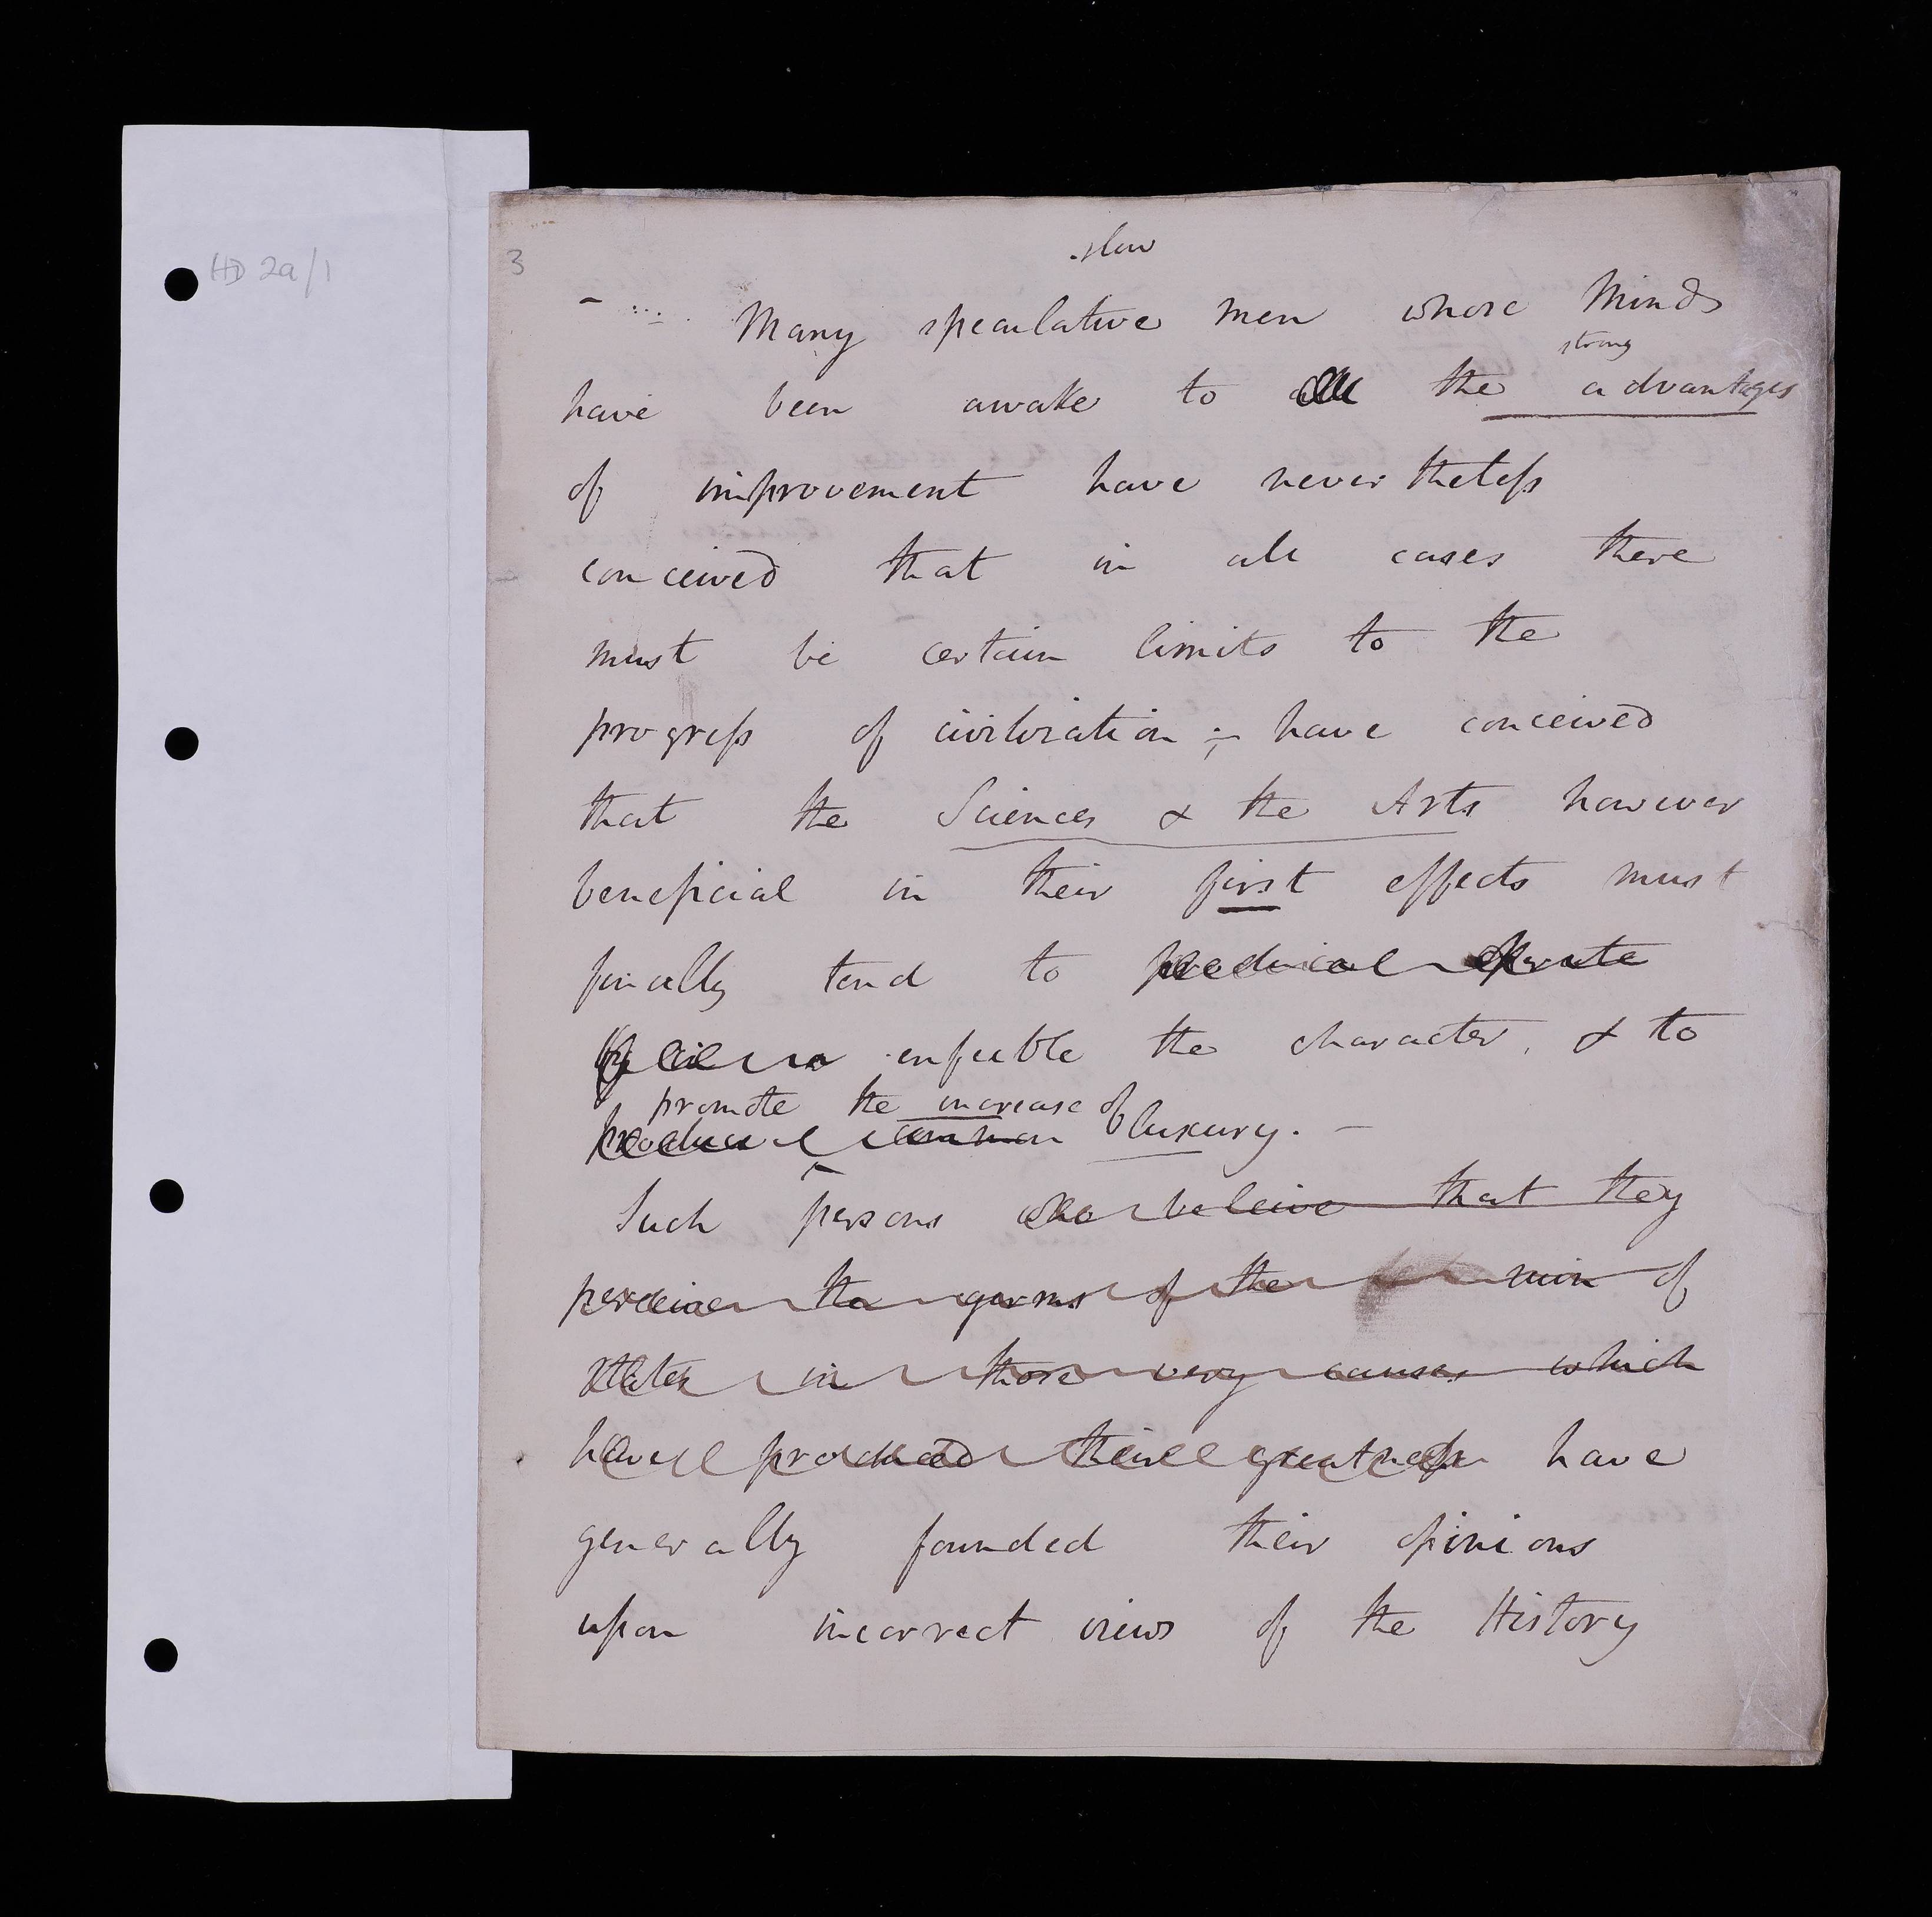 HD 2a/1
3
slow
Many speculative men whose Minds
strong
have been awake to all the advantages
of improvement have nevertheless
conceived that in all cases there
must be certain limits to the
progress of civilization; - have conceived
that the Sciences & the Arts however
beneficial in their first effects must
finally tend to
enfeeble the character, & to
promote the increase of
produce luxury. -
Such persons who beleive that they
perceive the germs of the ruin of
States in those very causes which
have produced their greatness have
generally founded their opinions
upon incorrect views of the History